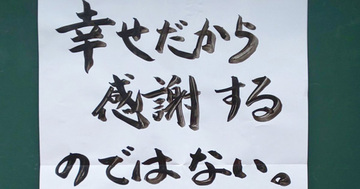 幸せだから
感謝する
のではない。